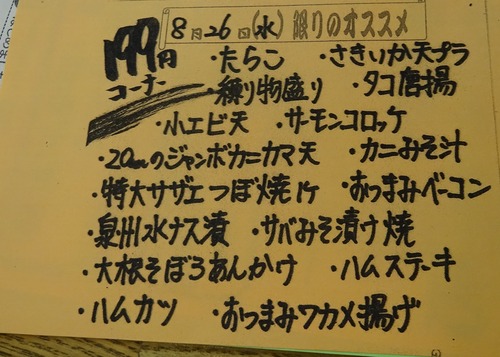 8月26日(水) 限りのオススメ
199円
コーナー
・たらこ ・さきいか天プラ
・練り物盛り ・タコ唐揚
・小エビ天 ・サーモンコロッケ
・20cmのジャンボカニカマ天 ・カニみそ汁
・特大サザエつぼ焼1ケ ・おつまみベーコン
・泉州水ナス漬 ・サバみそ漬け焼
・大根そぼろあんかけ ・ハムステーキ
・ハムカツ ・おつまみワカメ揚げ